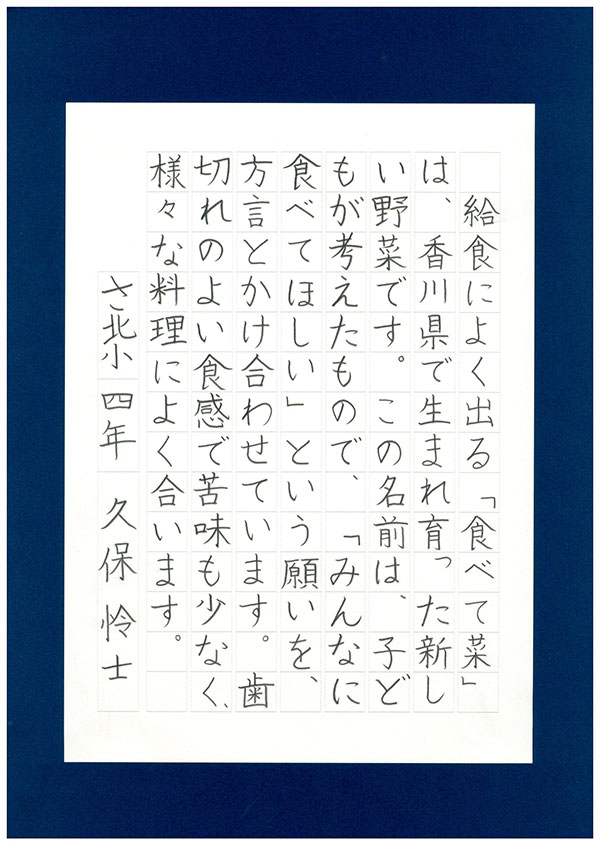 給食によく出る「食べて菜」
は、香川県で生まれ育った新し
い野菜です。この名前は、子ど
もが考えたもので、「みんなに
食べてほしい」という願いを、
方言とかけ合わせています。歯
切れのよい食感で苦味も少なく、
様々な料理によく合います。
さ北小 四年 久保怜士